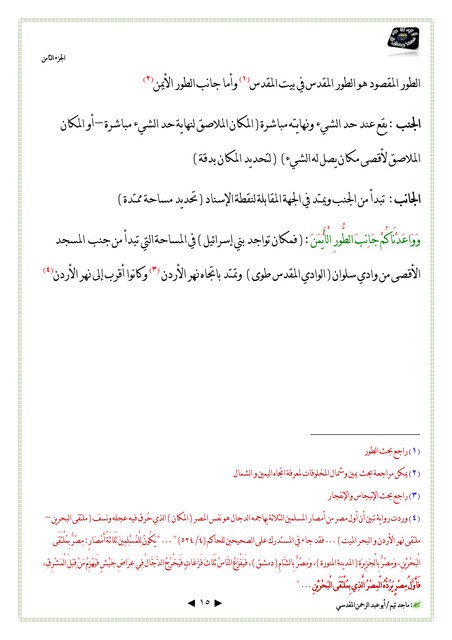 الجزء الثامن
الطور المقصود هو الطور المقدس في بيت المقدس (١) وأما جانب الطور الأيمن (٢)
الجنب : يقع عند حد الشيء ونهايته مباشرة ( المكان الملاصق لنهاية حد الشيء مباشرة – أو المكان
الملاصق لأقصى مكان يصل له الشيء ) ( لتحديد المكان بدقة )
الجانب : تبدأ من الجنب ويمتد في الجهة المقابلة لنقطة الإسناد ( تحديد مساحة ممتدة )
وَوَاعَدْنَاكُمْ جَانِبَ الطُّورِ الْأَيْمَنَ : ( فمكان تواجد بني إسرائيل ) في المساحة التي تبدأ من جنب المسجد
الأقصى من وادي سلوان ( الوادي المقدس طوى ) وتمتد باتجاه نهر الأردن (٣) وكانوا أقرب إلى نهر الأردن (٤)
(١) راجع بحث الطور
(٢) يمكن مراجعة بحث يمين وشمال المخلوقات لمعرفة اتجاه اليمين والشمال
(٣) راجع بحث الإنبجاس والإنفجار
(٤) وردت رواية تبين أن أول مصر من أمصار المسلمين الثلاثة يهاجمه الدجال هو نفس المصر ( المكان ) الذي حُرق فيه عجله ونسف ( ملتقى البحرين –
ملتقى نهر الأردن والبحر الميت ) ... فقد جاء في المستدرك على الصحيحين للحاكم (٤/ ٥٢٤) " ... "يَكُونُ لِلْمُسْلِمِينَ ثَلَاثَةُ أَمْصَارٍ: مِصْرٌ بِمُلْتَقَى
الْبَحْرَيْنِ، وَمِصْرٌ بِالْجَزِيرَةِ ( المدينة المنورة )، وَمِصْرٌ بِالشَّامِ ( دمشق )، فَيَفْزَعُ النَّاسُ ثَلَاثَ فَزَعَاتٍ فَيَخْرُجُ الدَّجَّالُ فِي عِرَاضِ جَيْشٍ فَيَهْزِمُ مَنْ قِبَلَ الْمَشْرِقِ،
فَأَوَّلُ مِصْرٍ يَرُدُّهُ الْمِصْرُ الَّذِي بِمُلْتَقَى الْبَحْرَيْنِ ... "
: ماجد تيم / أبو عبد الرحمن المقدسي
١٥